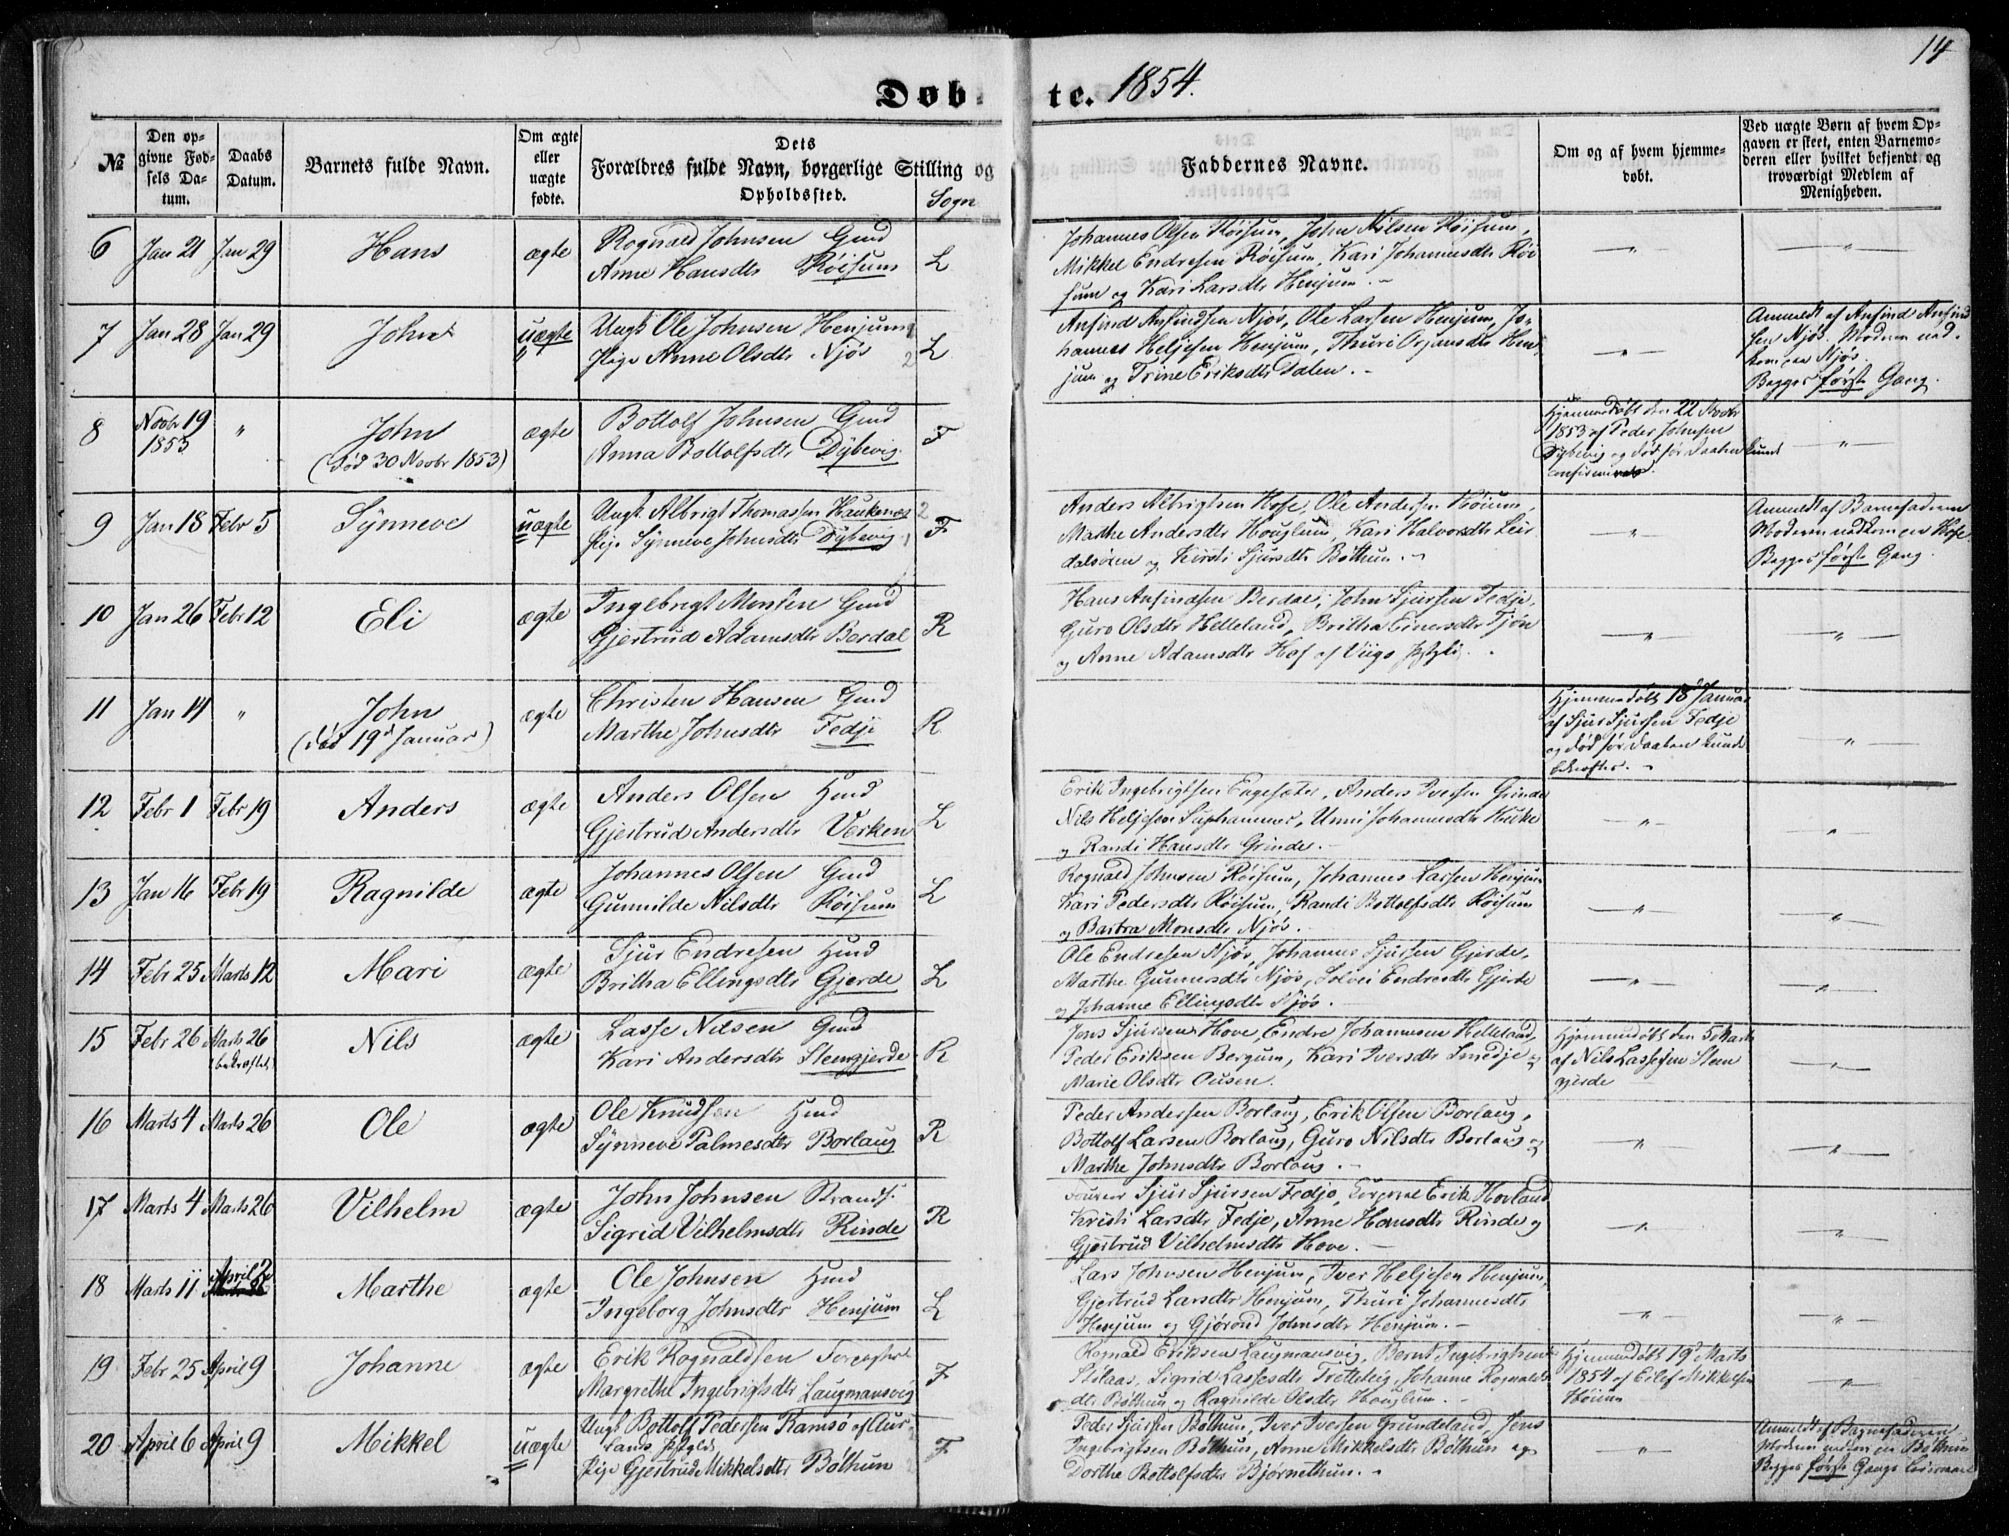 14
Døbte. 1854.
№
Den opgivne Fødsels Datum.
Daabs Datum.
Barnets fulde Navn.
Om ægte eller uægte fødte.
Dets Forældres fulde Navn, borgerlige Stilling og Opholdssted.
Sogn
Faddernes Navne.
Om og af hvem hjemmedøbt.
Ved uægte Børn af hvem Opgaven er skeet, enten Barnemoderen eller hvilket bekjendt og troværdigt Medlem af Menigheden.
6 Jan 21 Jan 29 Hans ægte Rognald Johnsen Gmd
Anne Hansdtr Röisum L
Johannes Olsen Röisum, John Nilsen Röisum,
Mikkel Endresen Röisum, Kari Johannesdtr Röi
sum og Kari Larsdtr Henjum. -
7 Jan 28 Jan 29 John uægte Ungk Ole Johnsen Henjum
Pige Anne Olsdtr Njøs 2 L
Ansind Ansindsen Njøs, Ole Larsen Henjum, Jo-
hannes Heljesen Henjum, Thuri Orjansdtr Hen
jum og Trine Eriksdtr Dalen. -
Anmeldt af Ansind Ansind
sen Njøs. Moderen ned.
kom paa Njøs.
Begges første Gang.
8 Novbr 19
1853 " John
(død 30 Novbr 1853) ægte Bottolf Johnsen Gmd
Anna Bottolfsdtr Dybevig F
Hjemmedöbt den 22 Novbr
1853 af Peder Johnsen
Dybevig og död för Daaben kunde
confirmeres.
9 Jan 18 Febr 5 Synneve uægte Ungk. Albrigt Thomassen Haukenæs 2
Pige Synneve Johnsdtr Dybevig 1 F
Anders Albrigtsen Hofe, Ole Andersen Höium,
Marthe Andersdtr Houglum, Kari Halvorsdtr Leir
dalsören og Kirsti Sjursdtr Böthun. -
Anmeldt af Barnefaderen
Moderen nedkom paa Hofe
Begges første Gang.
10 Jan 26 Febr 12 Eli ægte Ingebrigt Monsen Gmd
Gjertrud Adamsdtr Berdal R
Hans Ansindsen Berdal, John Sjursen Fedje,
Guro Olsdtr Helleland, Britha Einersdtr Tjøn
og Anne Adamsdtr Hof af Viigs
11 Jan 14 " John
(död 19d Januar) ægte Christen Hansen Gmd
Marthe Johnsdtr Fedje R
Hjemmedöbt 18d Januar
af Sjur Sjursen Fedje
og död för Daaben kunde
bekræftes. -
12 Febr 1 Febr 19 Anders ægte Anders Olsen Hmd
Gjertrud Andersdtr Verken L
Erik Ingebrigtsen Engesæter, Anders Iversen Grinde
Nils Heljesen Suphammer, Unni Johannesdtr Huske
og Randi Hansdtr Grinde. -
13 Jan 16 Febr 19 Ragnilde ægte Johannes Olsen Gmd
Gunnilde Nilsdtr Röisum L
Rognald Johnsen Röisum, Johannes Larsen Henjum
Kari Pedersdtr Röisum, Randi Bottolfsdtr Röisum
og Bartra Monsdtr Njøs. -
14 Febr 25 Marts 12 Mari ægte Sjur Endresen Hmd
Britha Ellingsdtr Gjerde L
Ole Endresen Njøs, Johannes Sjursen Gjerde,
Marthe Gunnersdtr Njøs, Solvei Endresdtr Gjerde
og Johanne Ellingsdtr Njøs. -
15 Febr 26 Marts 26
bekræftet Nils ægte Lasse Nilsen Gmd
Kari Andersdtr Steengjerde R
Jens Sjursen Hove, Endre Johannesen Helleland,
Peder Eriksen Bergum, Kari Iversdtr Smedje og
Marie Olsdtr Ousen.
Hjemmedöbt den 5 Marts
af Nils Lassesen Steen
gjerde
16 Marts 4 Marts 26 Ole ægte Ole Knudsen Hmd
Synneve Palmesdtr Borlaug R
Peder Andersen Borlaug, Erik Olsen Borlaug,
Bottolf Larsen Borlaug, Guro Nilsdtr Borlaug og
Marthe Johnsdtr Borlaug. -
17 Marts 4 Marts 26 Vilhelm ægte John Johnsen Strands.
Sigrid Vilhelmsdtr Rinde R
Fourer Sjur Sjursen Fedje, Korporal Erik Hovland,
Kristi Larsdtr Fedje, Anne Hansdtr Rinde og
Gjertrud Vilhelmsdtr Hove. -
18 Marts 11 April 2 Marthe ægte Ole Johnsen Hmd
Ingeborg Johnsdtr Henjum L
Lars Johnsen Henjum, Iver Heljesen Henjum,
Gjertrud Larsdtr Henjum, Thuri Johannesdtr
Henjum og Gjørond Johnsdtr Henjum. -
19 Febr 25 April 9 Johanne ægte Erik Rognaldsen
Margrethe Ingebrigtsdtr Laugmansvig F
Rognald Eriksen Laugmansvig, Bernt Ingebrigtsen
Stölaas, Sigrid Lassesdtr Tretteteig, Johanne Rognalds
dtr Böthun og Ragnilde Olsdtr Houglum. -
Hjemmedöbt 19d Marts
1854 af Eilef Mikkelsen
Höium
20 April 6 April 9 Mikkel uægte Ungk Bottolf Pedersen Ramsø af Aur-
lands Pgjeld
Pige Gjertrud Mikkelsdtr Böthun F
Peder Sjursen Böthun, Iver Iversen Grundeland, Jens
Ingebrigtsen Böthun, Anne Mikkelsdtr Böthun og
Dorthe Bottolfsdtr Bjørnethun. -
Anmeldt af Barnefaderen
Moderen nedkom paa Böthun
Begges første Gangs Leiermaal